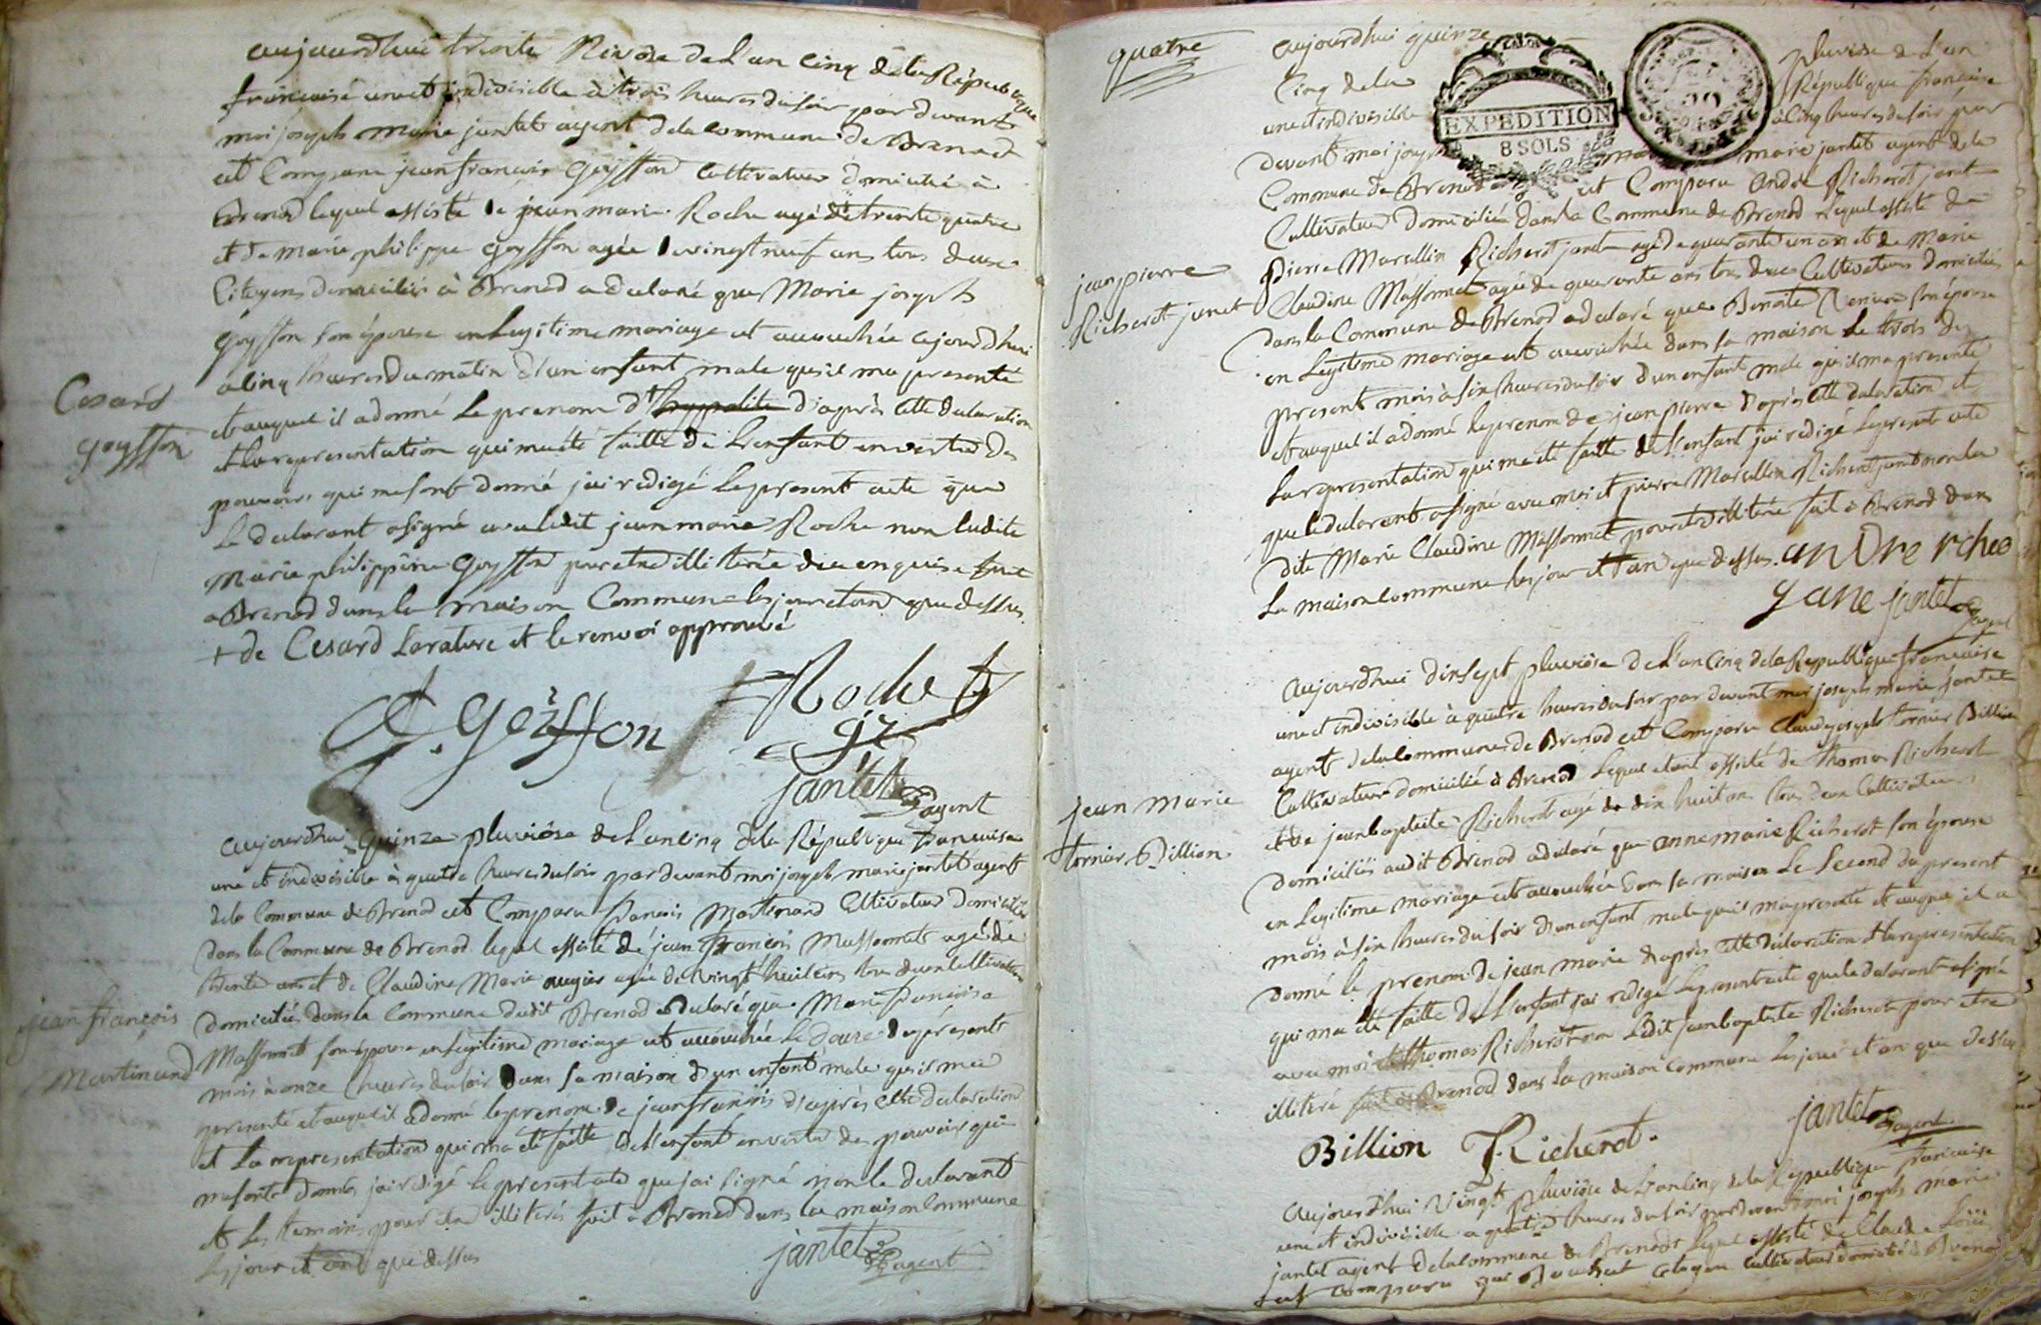 aujourdhui trente Nivose de L'an Cinq de la République
francaise une et indivisible à trois heures du soir par devant
moi joseph Marie jantet agent de la Commune de Brenod
est Comparu jean francois Goysson Cultivateur domicilié à
Brenod lequel assisté de jean marie Roche agé de trente quatre
et de marie philippe Goysson agée de vingt neuf ans tous deux
Citoyens domiciliés à Brenod a declaré que Marie joseph
Goysson son épouse en Legitime mariage est accouchée ajourdhui
a Cinq heures du matin d'un enfant male qu'il ma presenté
Cesard
Goysson
et auquel il a donné Le prenom d'+ hyppolite d'après cette declaration
et la representation qui ma été faitte de L'enfant en vertu des
pouvoirs qui me sont donné jai redigé Le present acte que
Le declarant a signé avec ledit jean marie Roche non ladite
Marie philippine Goysson pour etre illiterée de ce enquise fait
a Brenod dans la maison Commune les jour et an que dessus
+ de Cesard La rature et le renvoi approuvé
Goiffon
Rochet
jantet
agent
aujourdhui Quinze pluviôse de L'an Cinq de la République francaise
une et indivisible à quatre heures du soir par devant moi joseph marie jantet agent
de la Commune de Brenod est Comparu francois Martinand Cultivateur domicilié
dans la Commune de Brenod lequel assisté de jean francois Massonnet agé de
trente ans et de Claudine Marie augier agée de vingt huit ans tous deux Cultivateurs
jean françois
Martinand
domiciliés dans la Commune dudit Brenod a declaré que Marie francoise
Massonnet son épouse en Legitime mariage est accouchée Le douze du présent
mois à onze heures du soir dans sa maison d'un enfant male qu'il ma
presenté et auquel il a donné le prenom de jean francois d'après cette declaration
et La representation qui ma été faitte de L'enfant en vertu des pouvoirs qui
me sont donnés jai redigé le present acte que jai signé non le declarant
et Les temoins pour etre illiterés fait a Brenod dans la maison Commune
les jour et an que dessus
jantet
agent
quatre
aujourdhui quinze pluviôse de L'an
Cinq de la République francaise
une et indivisible à Cinq heures du soir par
EXPEDITION
8 SOLS
devant moi joseph marie jantet agent de la
Commune de Brenod est Comparu André Richerot janet
Cultivateur domicilié dans la Commune de Brenod Lequel assisté de
jean pierre
Richerot junet
Pierre Marcellin Richerot janet agé de quarante un an et de Marie
Claudine Massonnet agée de quarante ans tous deux Cultivateurs domiciliés
dans la Commune de Brenod a declaré que Benoite son épouse
en Legitime mariage est accouchée dans sa maison Le trois du
present mois à six heures du soir d'un enfant male qu'il ma presenté
et auquel il a donné le prenom de jean pierre d'après cette declaration et
La representation qui ma été faitte de L'enfant jai redigé Le present acte
que le declarant a signé avec moi et pierre Marcellin Richerot janet non la
dite Marie Claudine Massonnet pour etre illiterée fait a Brenod dans
La maison Commune les jour et an que dessus. andre rcheo
gane jantet
agent
aujourdhui dixsept pluviôse de L'an Cinq de la République francaise
une et indivisible à quatre heures du soir par devant moi joseph marie jantet
agent de la Commune de Brenod est Comparu Claude joseph tornier Billion
Cultivateur domicilié à Brenod Lequel etant assisté de thomas Richerot
jean marie
tornier Billion
et de jean baptiste Richerot agé de dix huit ans tous deux Cultivateurs
domiciliés audit Brenod a declaré que anne marie Richerot son épouse
en Legitime mariage est accouchée dans sa maison Le Second du present
mois à six heures du soir d'un enfant male qu'il ma presenté et auquel il a
donné le prenom de jean marie d'après cette declaration et la representation
qui ma été faitte de L'enfant jai redigé Le present acte que le declarant a signé
avec moi et thomas Richerot non Ledit jean baptiste Richerot pour etre
illiteré fait a Brenod dans La maison Commune Les jour et an que dessus
Billion T. Richerot.
jantet
agent
aujourd'hui Vingt pluviôse de L'an Cinq de la République francaise
une et indivisible a quatre heures du soir par devant moi joseph marie
jantet agent de la Commune de Brenod Lequel assisté de Claude
est Comparu Citoyen Cultivateur domicilié à Brenod